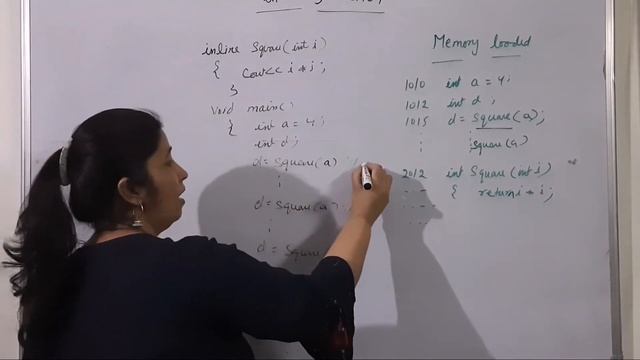 inline Square(int i)
{ Cout<< i * i ;
}
Void main()
{ int a = 4;
int d;
d = Square(a)
d = Square(a)
d = Square
Memory loaded
1010 int a = 4;
1012 int d ;
1015 d = Square(a);
Square(a)
2012 int Square(int i)
{ return i * i;